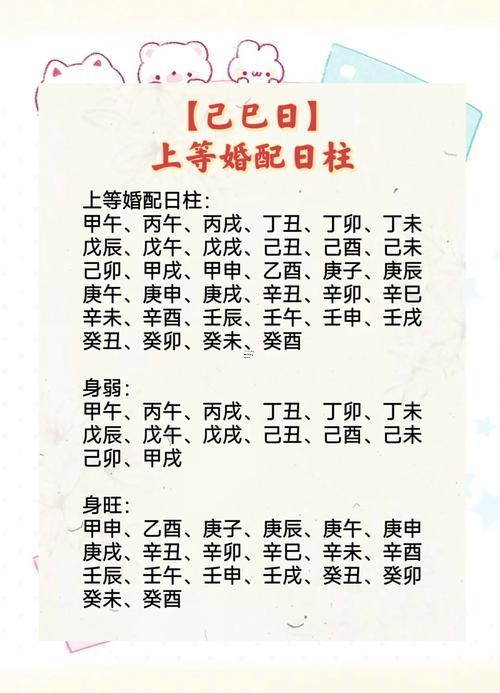 【己巳日】
上等婚配日柱
上等婚配日柱：
甲午、丙午、丙戌、丁丑、丁卯、丁未
戊辰、戊午、戊戌、己丑、己酉、己未
己卯、甲戌、甲申、乙酉、庚子、庚辰
庚午、庚申、庚戌、辛丑、辛卯、辛巳
辛未、辛酉、壬辰、壬午、壬申、壬戌
癸丑、癸卯、癸未、癸酉
身弱：
甲午、丙午、丙戌、丁丑、丁卯、丁未
戊辰、戊午、戊戌、己丑、己酉、己未
己卯、甲戌
身旺：
甲申、乙酉、庚子、庚辰、庚午、庚申
庚戌、辛丑、辛卯、辛巳、辛未、辛酉
壬辰、壬午、壬申、壬戌、癸丑、癸卯
癸未、癸酉